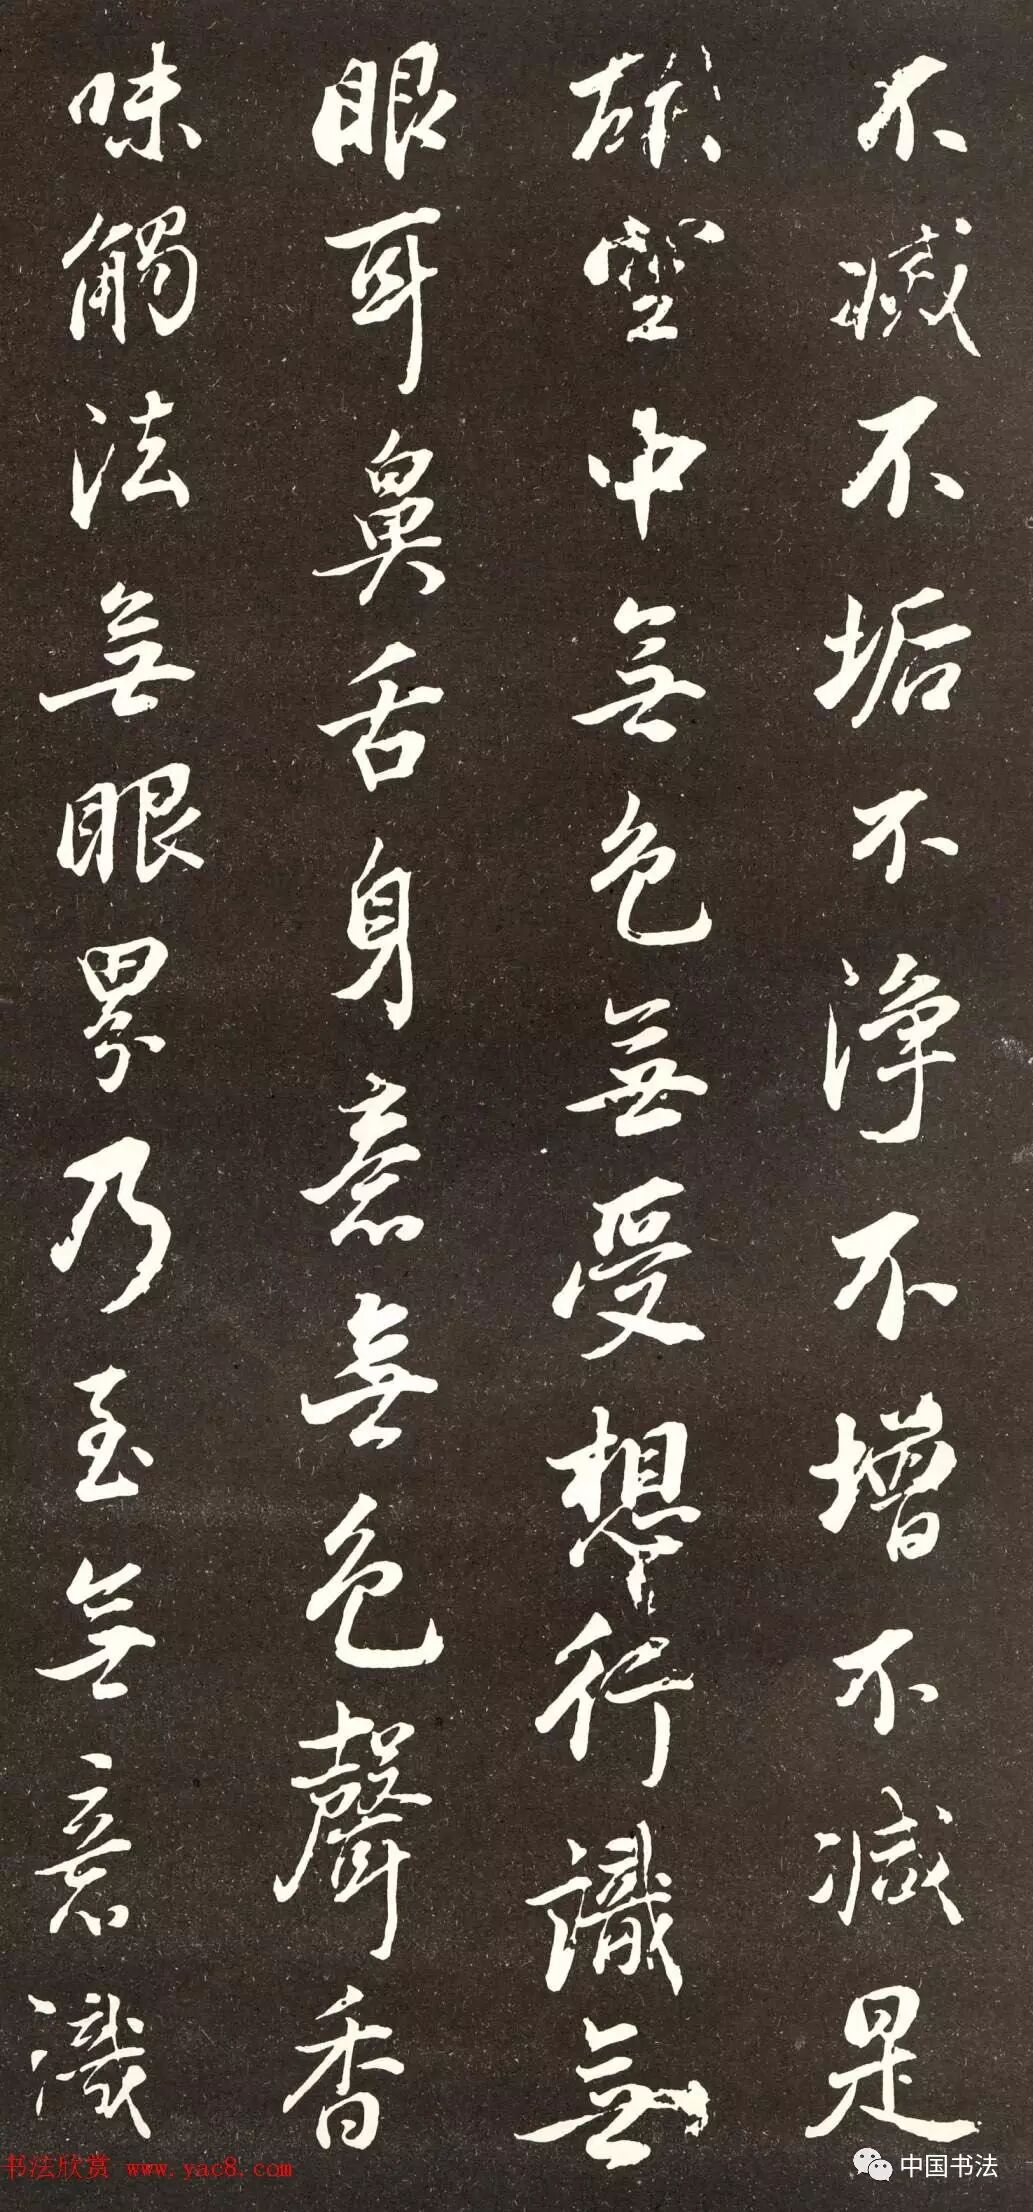 不減不垢不淨不增不減是
故空中無色無受想行識無
眼耳鼻舌身意無色聲香
味觸法無眼界乃至無意識
书法欣赏 www.yac8.com
中国书法